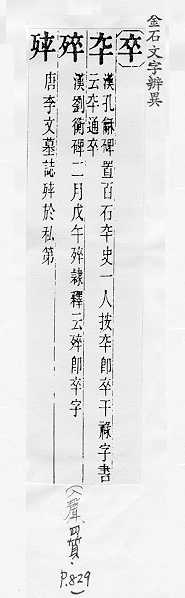 金石文字辨異
卒
卆
漢孔龢碑置百石卆史一人按卆即卒干祿字書
云卆通卒
漢劉衡碑二月戊午 隸釋云 即卒字
唐李文墓誌 於私第
(入聲、四質.
P.829)